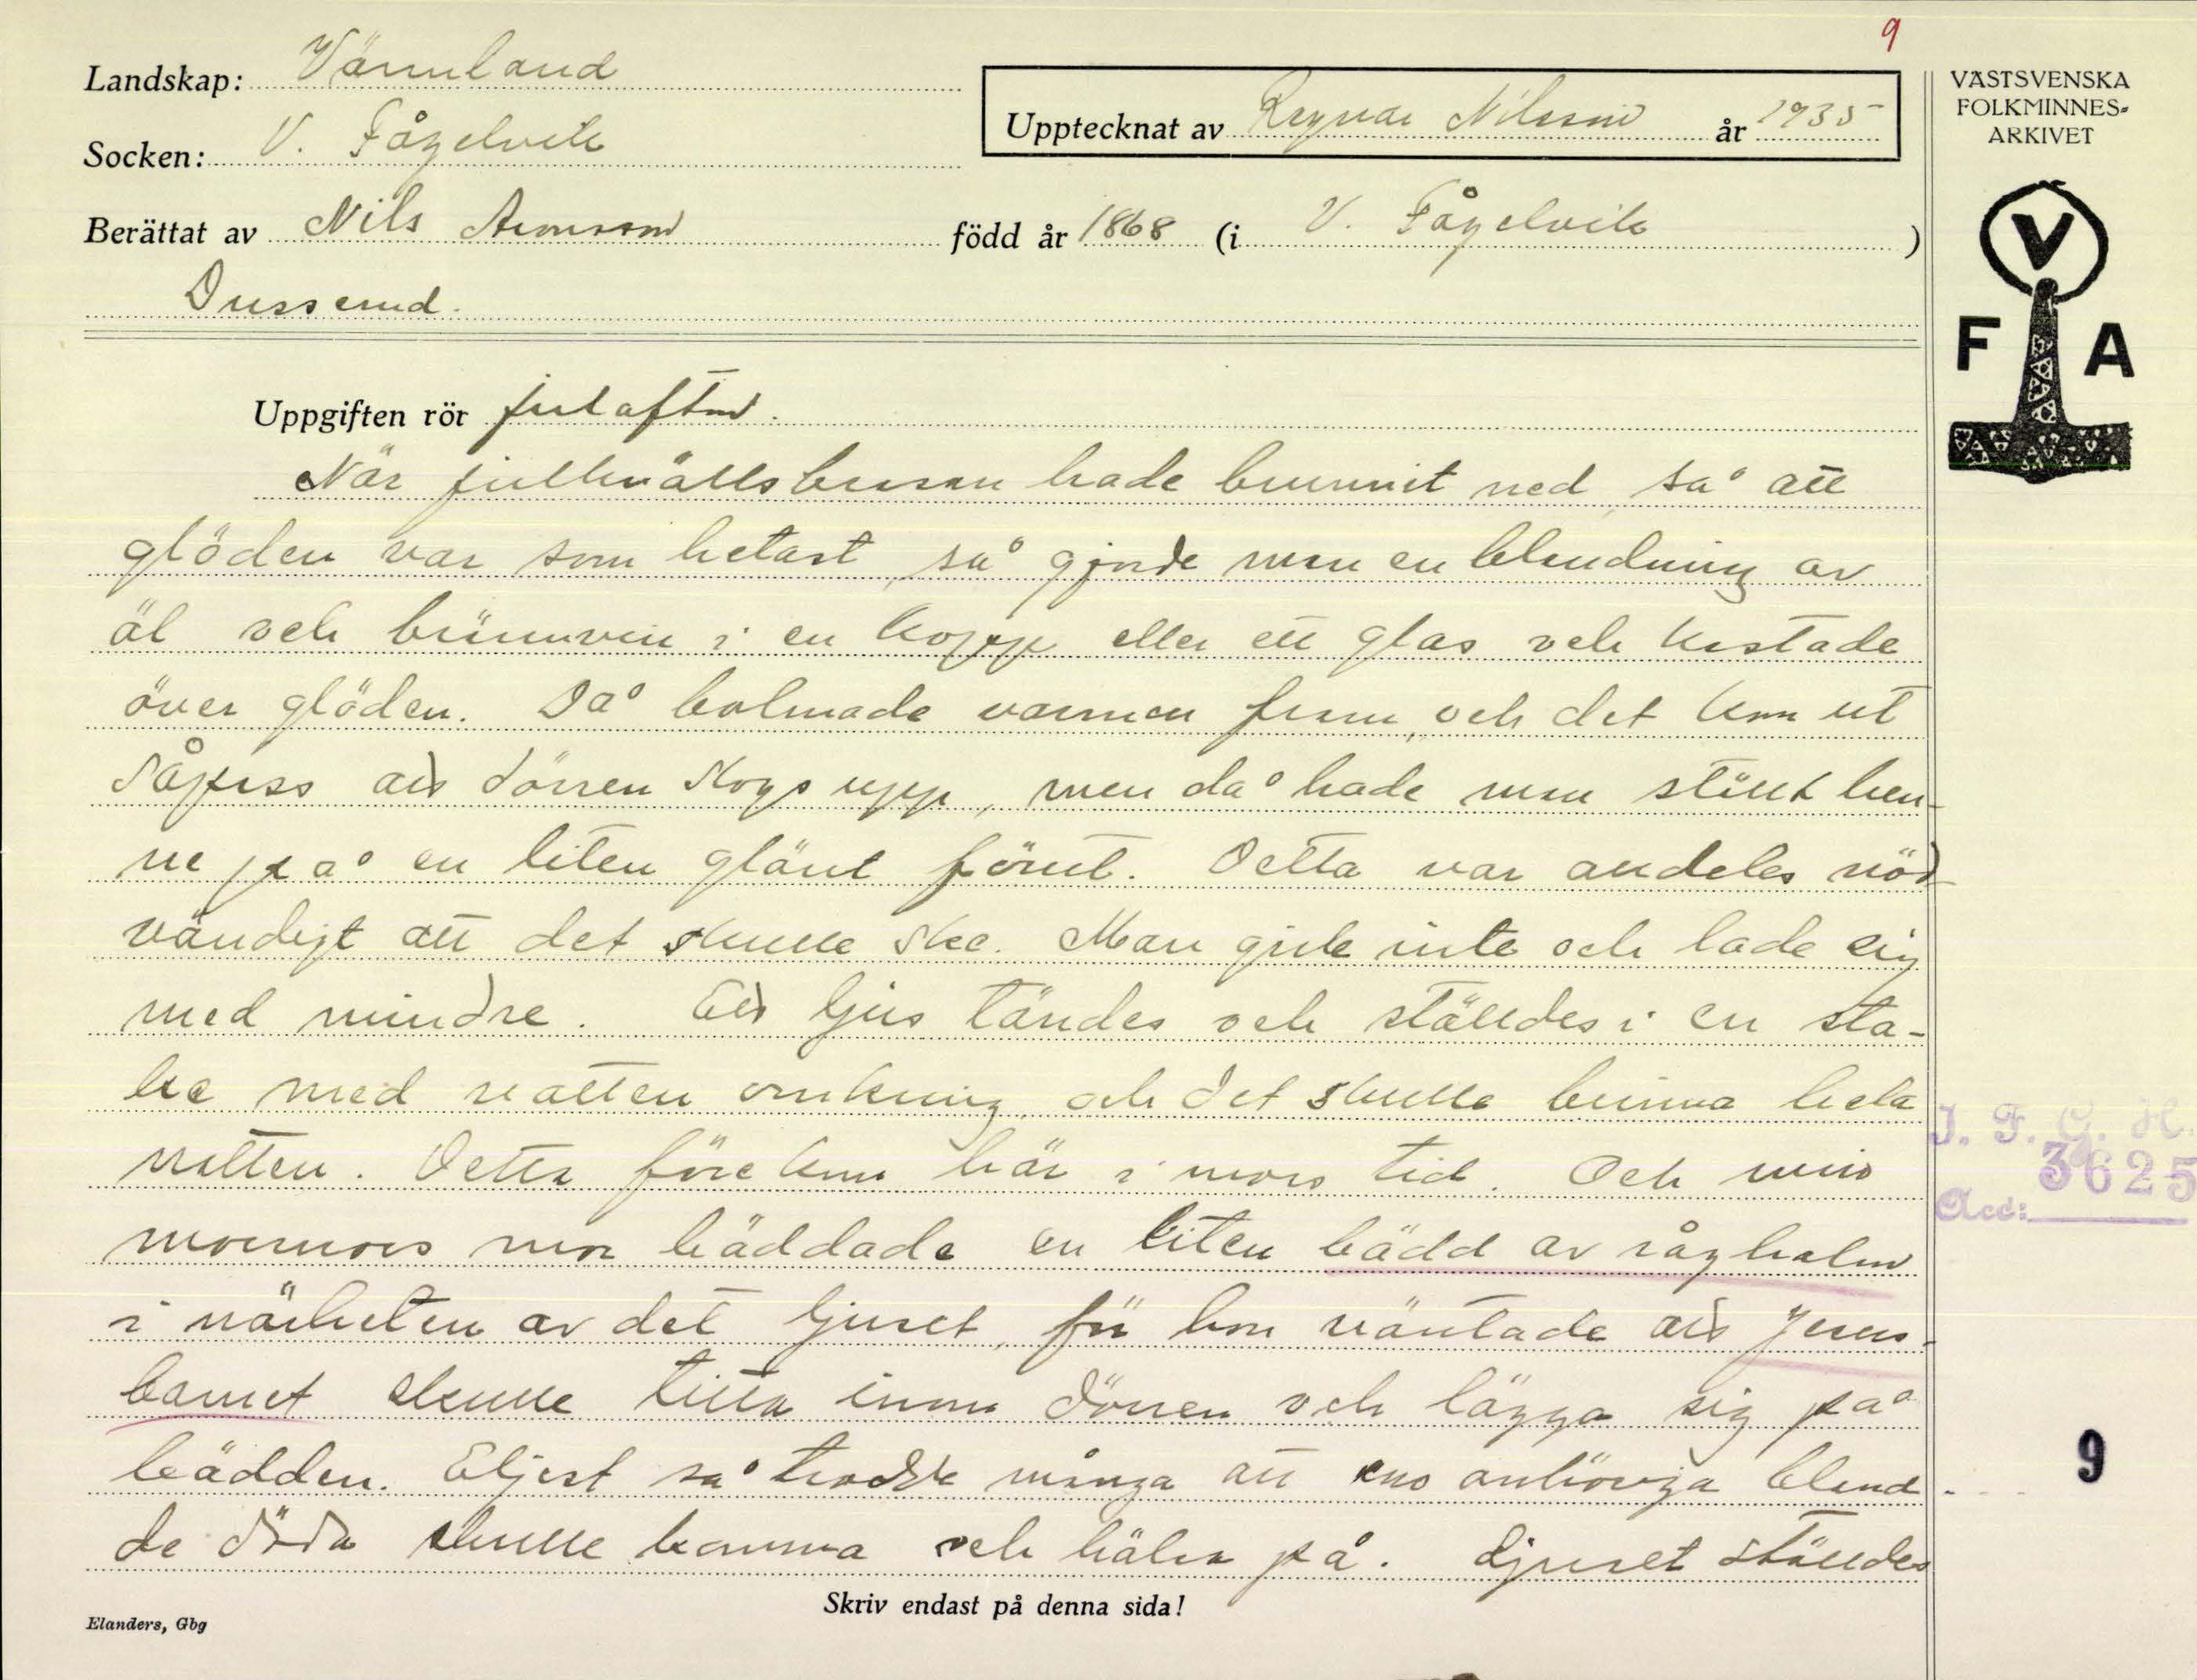 9
Landskap: Värmland
Socken: V. Fågelvik
Upptecknat av Ragnar Nilsson år 1935
VÄSTSVENSKA
FOLKMINNES-
ARKIVET
Berättat av Nils Aronsson född år 1868 (i V. Fågelvik )
Dusserud.
V
F A
Uppgiften rör julafton.
När julkvällsbrasan hade brunnit ned så att
glöden var som hetast, så gjorde man en blandning av
öl och brännvin i en kopp eller ett glas och kastade
över glöden. Då bolmade varmen fram, och det kom ut
såpass att dörren slogs upp, men då hade man ställt hen-
ne på en liten glänt förut. Detta var alldeles nöd-
vändigt att det skulle ske. Man gick inte och lade sig
med mindre. Ett ljus tändes och ställdes i en sta-
ke med vatten omkring, och det skulle brinna hela
natten. Detta förekom här i mors tid. Och min
mormors mor bäddade en liten bädd av råghalm
i närheten av det ljuset, för hon väntade att Jesus-
barnet skulle titta inom dörren och lägga sig på
bädden. Eljest så trodde många att ens anhöriga bland
de döda skulle komma och hälsa på. Ljuset ställdes
J. F. G. H.
3625
Acc:
9
Skriv endast på denna sida!
Elanders, Gbg